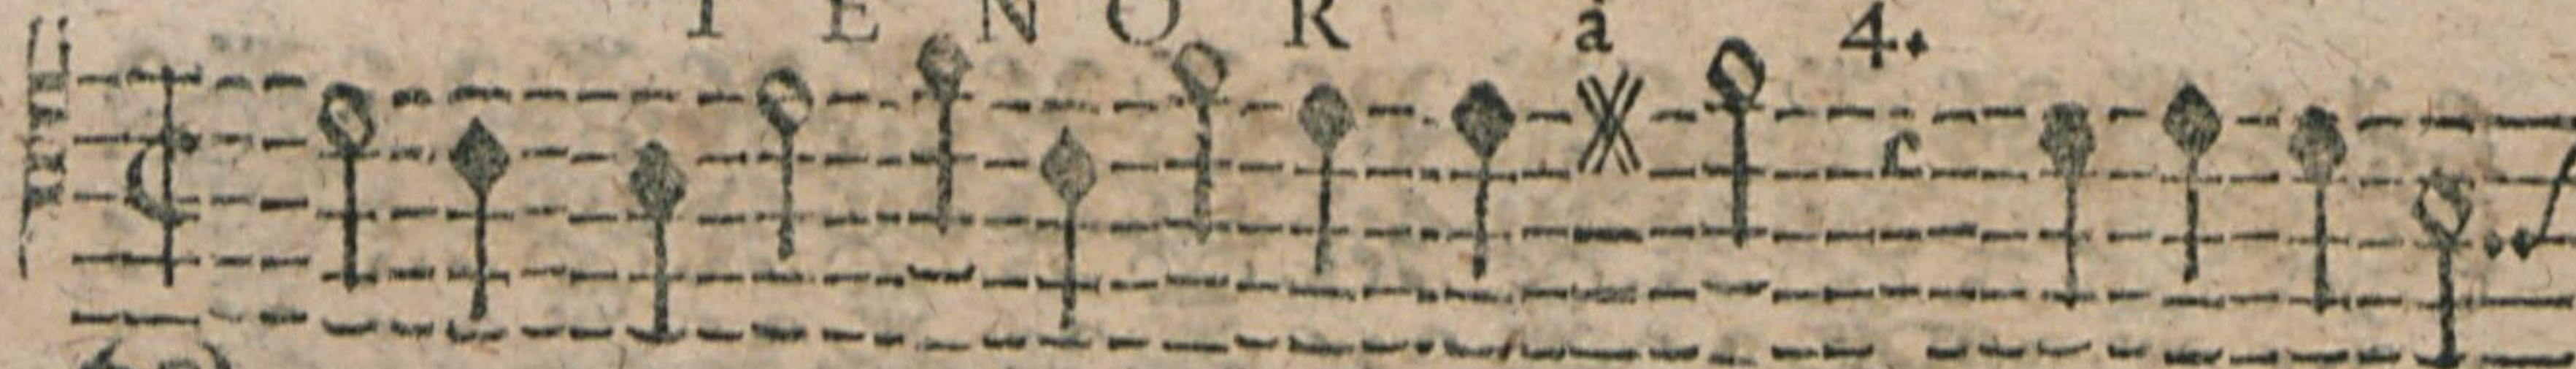 TENOR à 4.